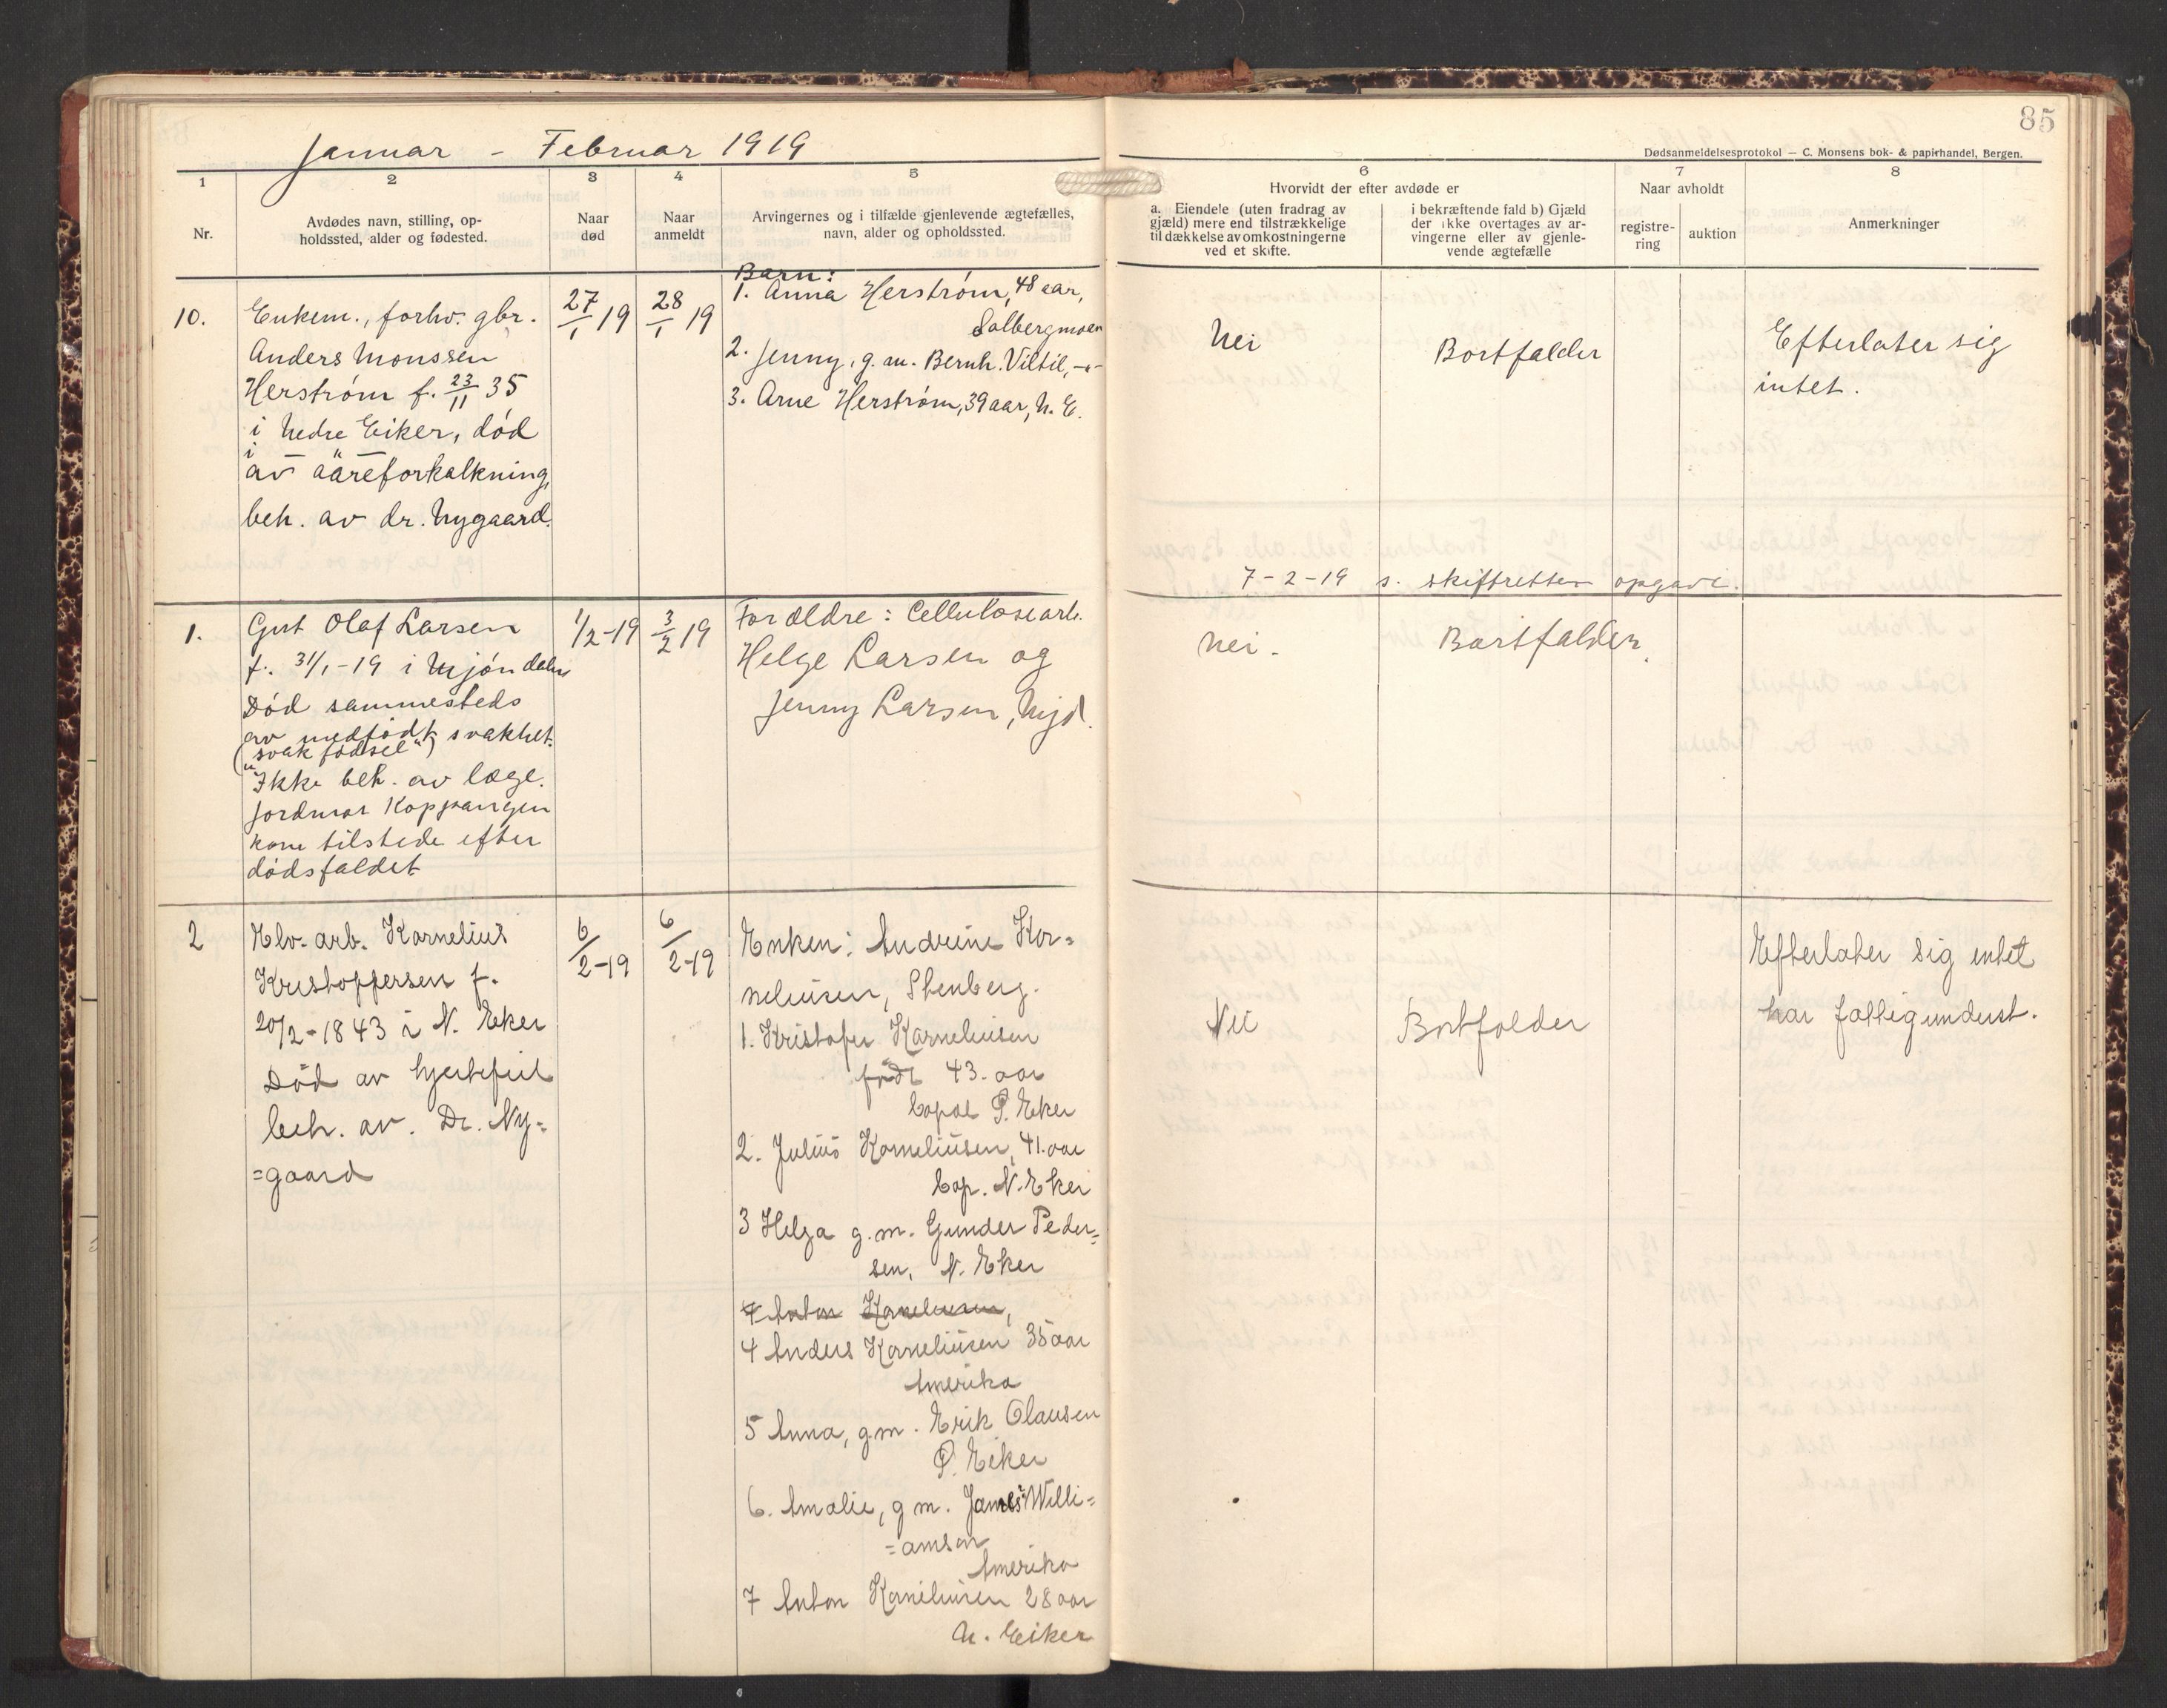 Januar - Februar 1919
85
Dødsanmeldelsesprotokol — C. Monsens bok- & papirhandel, Bergen.
1
2
3
4
5
6
7
8
Nr.
Avdødes navn, stilling, op-
holdssted, alder og fødested.
Naar
død
Naar
anmeldt
Arvingernes og i tilfælde gjenlevende ægtefælles,
navn, alder og opholdssted.
Hvorvidt der efter avdøde er
a. Eiendele (uten fradrag av
gjæld) mere end tilstrækkelige
til dækkelse av omkostningerne
ved et skifte.
i bekræftende fald b) Gjæld
der ikke overtages av ar-
vingerne eller av gjenle-
vende ægtefælle
Naar avholdt
registre-
ring
auktion
Anmerkninger
10.
Enkem., forhv. gbr.
Anders Monssen
Herstrøm f. 23/11 35
i Nedre Eiker, død
i — " —
av aareforkalkning,
beh. av dr. Nygaard.
27/1 19
28/1 19
Barn:
1. Anna Herstrøm, 48 aar,
Solbergmoen
2. Jenny, g. m. Bernh. Viltil, -"-
3. Arne Herstrøm, 39 aar, N. E.
Nei
Bortfalder
Efterlater sig
intet.
7-2-19 s. skifteretten opgave.
1.
Gut Olaf Larsen
f. 31/1-19 i Mjøndalen
Død sammesteds
av medfødt svakhet.
("svak fødsel")
Ikke beh. av læge.
Jordmor Koppangen
kom tilstede efter
dødsfaldet
1/2-19
3/2 19
Forældre: Cellulosearb.
Helge Larsen og
Jenny Larsen, Mjd.
Nei.
Bortfalder.
2
Elv. arb. Kornelius
Kristoffersen f.
20/2-1843 i N. Eker
Død av hjertefeil
beh. av. Dr. Ny=
=gaard
6/2-19
6/2-19
Enken: Andrine Kor=
neliusen, Stenberg.
1. Kristofer Korneliusen
født 43. aar
bopæl Ø. Eker
2. Julius Korneliusen, 41. aar
bop. N. Eker
3 Helga g. m. Gunder Peder=
sen, N. Eker
4 Anton Korneliusen,
4 Anders Korneliusen 35 aar
Amerika
5 Anna, g.m. Erik Olausen
Ø. Eiker
6. Amalie, g m. James Willi=
=amson
Amerika
7 Anton Korneliusen 28 aar
N. Eiker
Nei
Bortfalder
Efterlater sig intet
har fattigunderst.